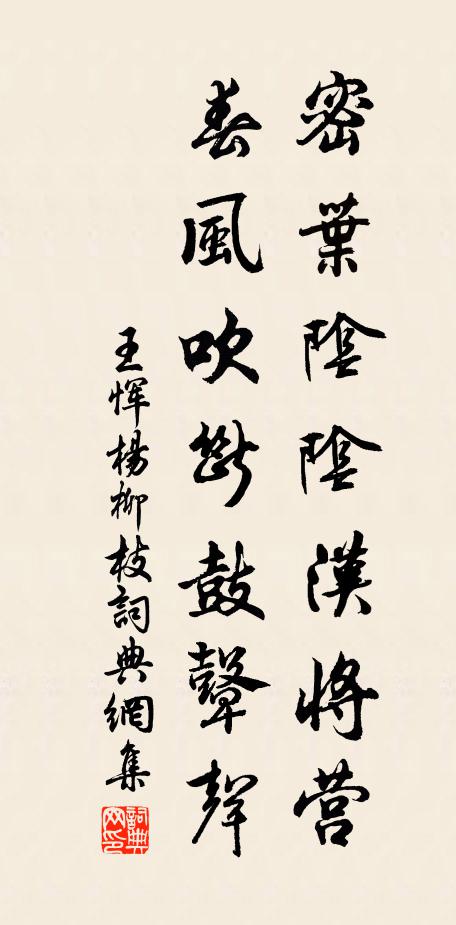 密葉陰陰漢將营
春風吹斷鼓鼙聲
王恽楊柳枝詞典網集
詞典网印